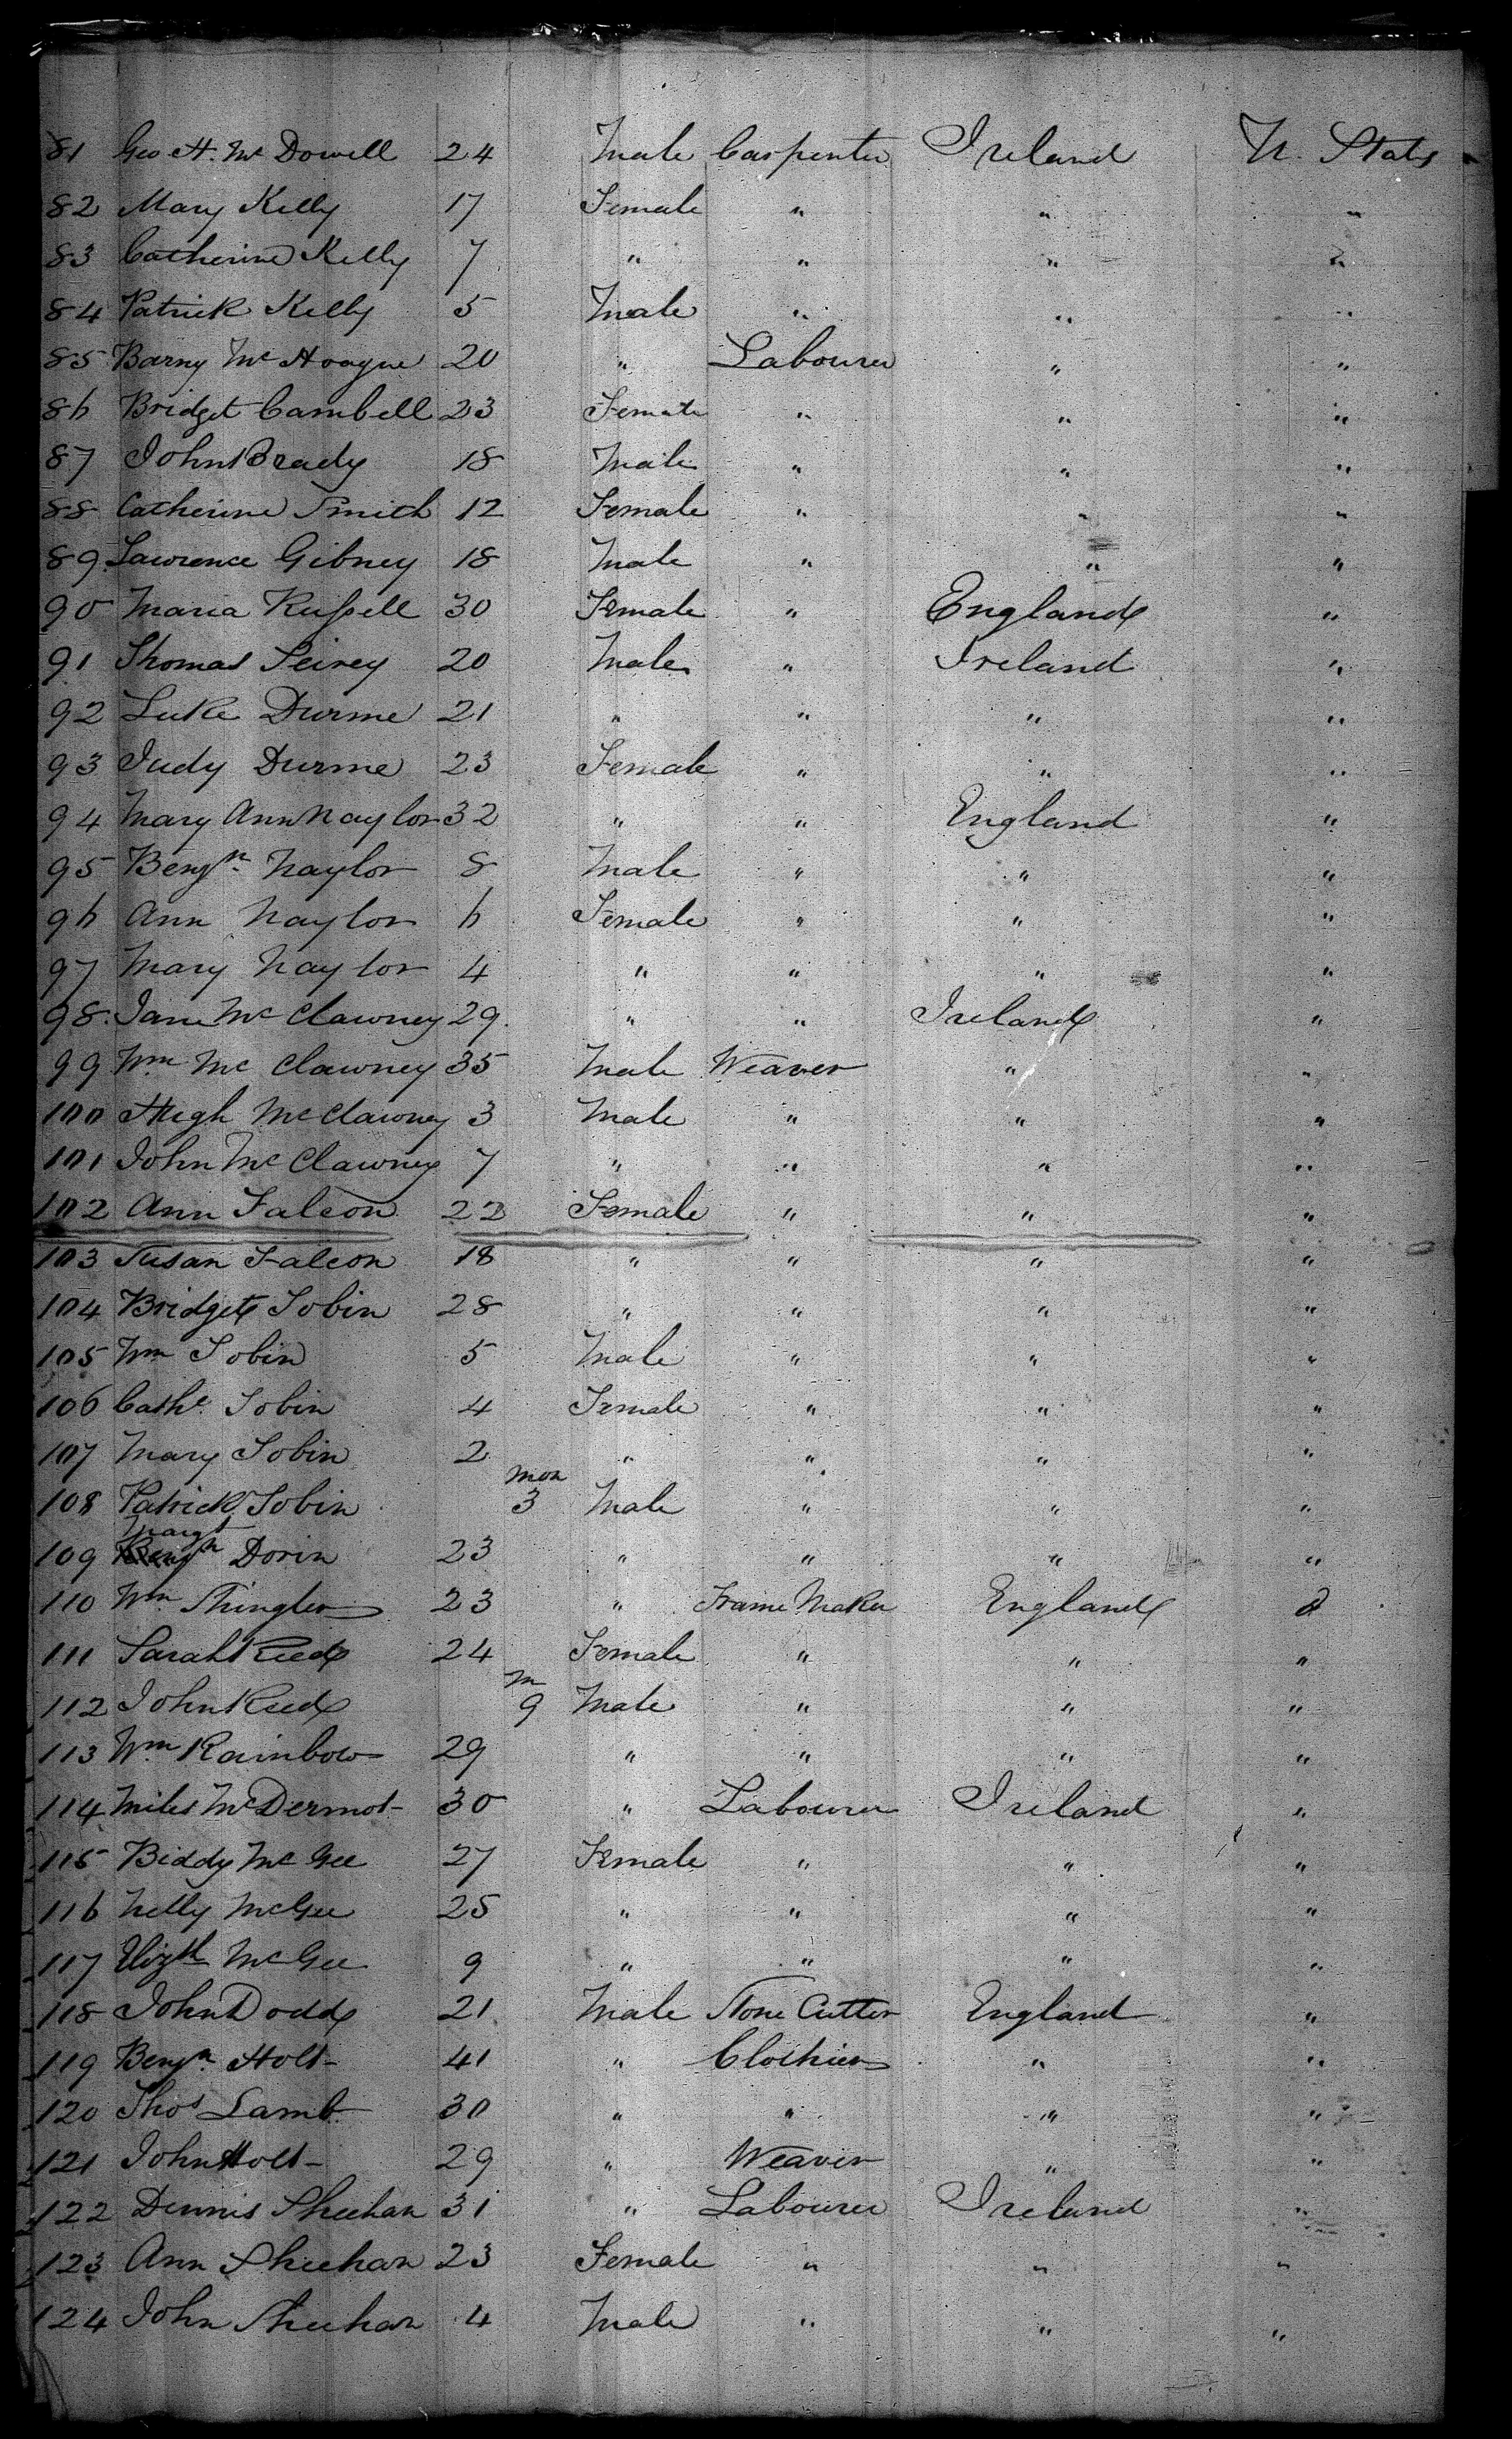 81 Geo H. Mc Dowell 24 Male Carpenter Ireland U. States
82 Mary Kelly 17 Female " " "
83 Catherine Kelly 7 " " " "
84 Patrick Kelly 5 Male " " "
85 Barny Mc Hoague 20 " Labourer " "
86 Bridget Cambell 23 Female " " "
87 John Brady 18 Male " " "
88 Catherine Smith 12 Female " " "
89 Lawrence Gibney 18 Male " " "
90 Maria Russell 30 Female " England "
91 Thomas 20 Male " Ireland "
92 Luke Durme 21 " " " "
93 Judy Durme 23 Female " " "
94 Mary Ann Naylor 32 " " England "
95 Benjn. Naylor 8 Male " " "
96 Ann Naylor 6 Female " " "
97 Mary Naylor 4 " " " "
98. Jane Mc Clawney 29. " " Ireland "
99 Wm Mc Clawney 35 Male Weaver " "
100 Hugh Mc Clawney 3 Male " " "
101 John Mc Clawney 7 " " " "
102 Ann Falcon 22 Female " " "
103 Susan Falcon 18 " " " "
104 Bridget Tobin 28 " " " "
105 Wm Tobin 5 Male " " "
106 Cathe. Tobin 4 Female " " "
107 Mary Tobin 2 " " " "
108 Patrick Tobin mon 3 Male " " "
109 Margt Dorin 23 " " " "
110 Wm Shingler 23 " Frame Maker England "
111 Sarah Reed 24 Female " " "
112 John Reed m 9 Male " " "
113 Wm Rainbow 29 " " " "
114 Miles McDermot 30 " Labourer Ireland "
115 Biddy Mc Gee 27 Female " " "
116 Nelly McGee 25 " " " "
117 Elizth McGee 9 " " " "
118 John Dodd 21 Male Stone Cutter England "
119 Benjn. Holt 41 " Clothier " "
120 Thos Lamb 30 " " " "
121 John Holt 29 " Weaver " "
122 Dennis Sheehan 31 " Labourer Ireland "
123 Ann Sheehan 23 Female " " "
124 John Sheehan 4 Male " " "